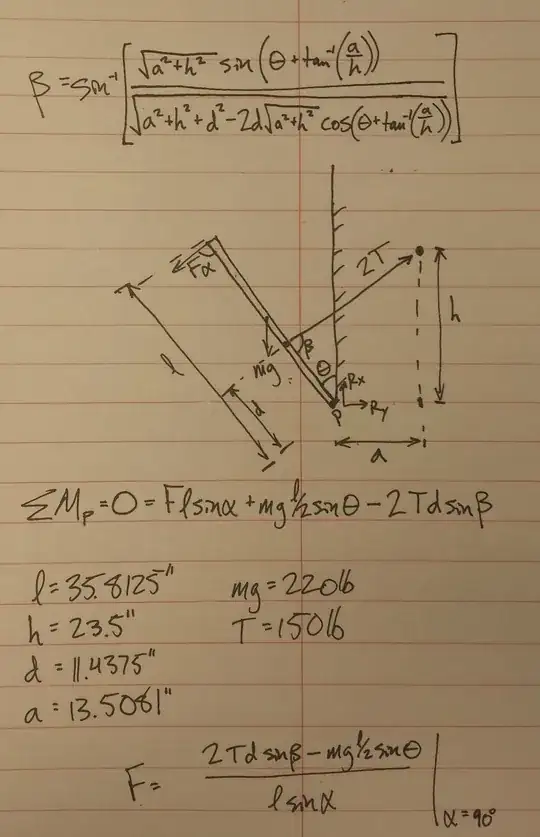 β = sin⁻¹[ √(a²+h²) sin(θ+tan⁻¹(a/h)) / √(a²+h²+d²-2d√(a²+h²) cos(θ+tan⁻¹(a/h))) ]
F α
2T
h
l
mg
β
θ
d
Rx
P
Ry
a
ΣMp=0=Flsinα+mg l/2 sinθ-2Tdsinβ
l=35.8125"
mg=220lb
h=23.5"
T=150lb
d=11.4375"
a=13.5081"
F= (2Tdsinβ-mg l/2 sinθ) / (lsinα) | α=90°